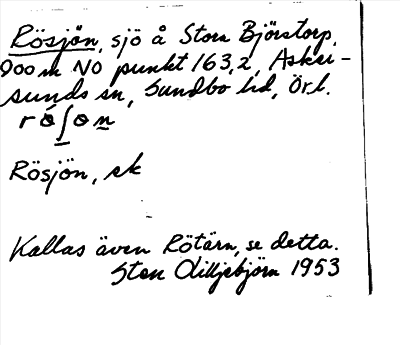 Rösjön, sjö å Stora Björstorp,
900 m NO punkt 163,2, Asker-
sunds sn, Sundbo hd, Örl.
Rösjön, ek
Kallas även Rötärn, se detta.
Sten Lilljebjörn 1953